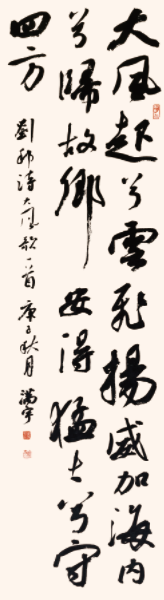 大風起兮雲飛揚威加海內
兮歸故鄉安得猛士兮守
四方
劉邦詩大風歌一首庚子秋月滿宇